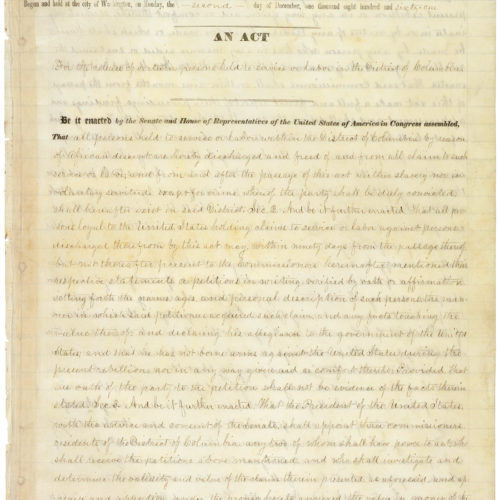 Begun and held at the city of Washington, on Monday, the second day of December, one thousand eight hundred and sixty-one
AN ACT
For the release of certain persons held to service or labor in the District of Columbia.
Be it enacted by the Senate and House of Representatives of the United States of America in Congress assembled,
That all persons held to service or labor within the District of Columbia by reason
of African descent are hereby discharged and freed of and from all claim to such
service or labor; and from and after the passage of this act neither slavery nor in-
voluntary servitude, except for crime, whereof the party shall be duly convicted
shall hereafter exist in said District. Sec. 2. And be it further enacted, That all per
sons loyal to the United States holding claims to service or labor against persons
discharged therefrom by this act may, within ninety days from the passage thereof
but not thereafter present to the commissioners hereinafter mentioned their
respective statements or petitions in writing, verified by oath or affirmation
setting forth the names, ages, and personal description of such persons, the man-
ner in which said petitioners acquired such claim, and any facts touching the
value thereof, and declaring his allegiance to the government of the United
States, and that he has not borne arms against the United States during the
present rebellion, nor in any way given aid or comfort thereto: Provided, That
the oath of the party to the petition shall not be evidence of the facts therein
stated. Sec. 3. And be it further enacted, That the President of the United States,
with the advice and consent of the Senate, shall appoint three commissioners,
residents of the District of Columbia, any two of whom shall have power to act, who
shall receive the petitions above mentioned, and who shall investigate and
determine the validity and value of the claims therein presented, as aforesaid, and ap